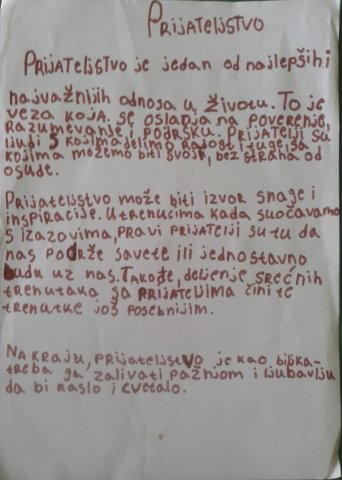 Prijateljstvo
Prijateljstvo je jedan od najlepših i
najvažnijih odnosa u životu. To je
veza koja se oslanja na poverenje,
razumevanje i podršku. Prijatelji su
ljudi s kojima delimo radost i tuge, sa
kojima možemo biti svoji, bez straha od
osude.
Prijateljstvo može biti izvor snage i
inspiracije. U trenucima kada suočavamo
s izazovima, pravi prijatelji su tu da
nas podrže savete ili jednostavno
budu uz nas. Takođe, deljenje srećnih
trenutaka sa prijateljima čini te
trenutke još posebnijim.
Na kraju, prijateljstvo je kao biljka-
treba ga zalivati pažnjom i ljubavlju
da bi raslo i cvetalo.